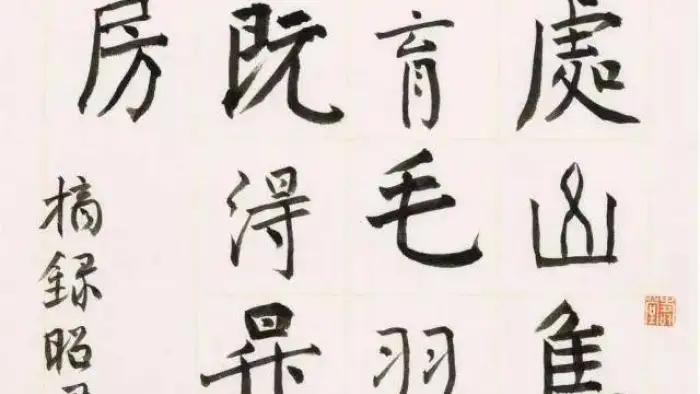 處山集
育毛羽
既得昇
房
摘録昭